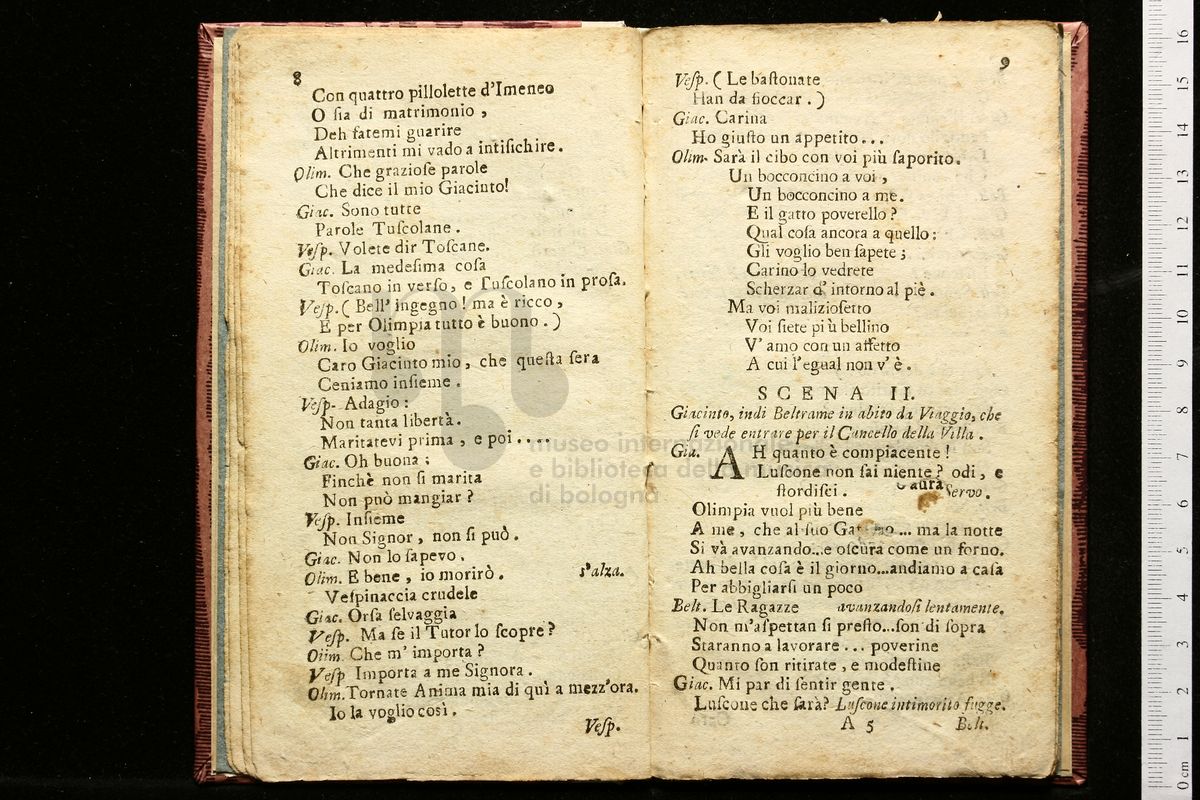 8
Con quattro pillolette d'Imeneo
O ſia di matrimonio ,
Deh fatemi guarire
Altrimenti mi vado a intiſichire .
Olim. Che grazioſe parole
Che dice il mio Giacinto!
Giac. Sono tutte
Parole Tuſcolane .
Veſp. Volete dir Toſcane.
Giac. La medeſima coſa
Toſcano in verſo, e Tuſcolano in proſa.
Veſp. ( Bell' ingegno ! ma è ricco ,
E per Olimpia tutto è buono . )
Olim. Io voglio
Caro Giacinto mio , che queſta ſera
Ceniamo inſieme .
Veſp. Adagio :
Non tanta libertà .
Maritatevi prima , e poi . . . .
Giac. Oh buona ;
Finchè non ſi marita
Non può mangiar ?
Veſp. Inſieme
Non Signor , non ſi può .
Giac. Non lo ſapevo .
Olim. E bene , io morirò . s'alza.
Veſpinaccia crudele
Giac. Orſa ſelvaggia
Veſp. Ma ſe il Tutor lo ſcopre ?
Olim. Che m' importa ?
Veſp Importa a me Signora .
Olim. Tornate Anima mia di quì a mezz'ora.
Io la voglio così .
Veſp.
9
Veſp. ( Le baſtonate
Han da fioccar . )
Giac. Carina
Ho giuſto un appetito . . .
Olim. Sarà il cibo con voi più ſaporito.
Un bocconcino a voi ,
Un bocconcino a me.
E il gatto poverello ?
Qual coſa ancora a quello ;
Gli voglio ben ſapete ;
Carino lo vedrete
Scherzar d' intorno al piè .
Ma voi malizioſetto
Voi ſiete più bellino
V' amo con un affetto
A cui l'egual non v' è .
SCENA II.
Giacinto, indi Beltrame in abito da Viaggio, che
ſi vede entrare per il Cancello della Villa .
Gia. AH quanto è compiacente !
Luſcone non ſai niente ? odi , e
ſtordiſci . Servo .
Olimpia vuol più bene
A me , che al ſuo Gattino ... ma la notte
Si và avanzando...e oſcura come un forno.
Ah bella coſa è il giorno...andiamo a caſa
Per abbigliarſi un poco
Belt. Le Ragazze avanzandoſi lentamente.
Non m'aſpettan ſì preſto...ſon di ſopra
Staranno a lavorare . . . poverine
Quanto ſon ritirate , e modeſtine
Giac. Mi par di ſentir gente .
Luſcone che ſarà? Luſcone intimorito fugge.
A 5 Belt.
museo internazionale
e biblioteca della musica
di bologna